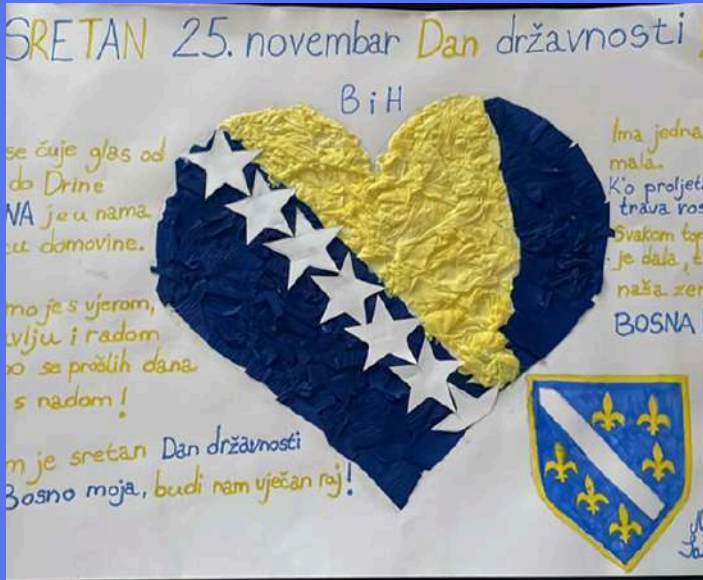 SRETAN 25. novembar Dan državnosti
BiH
se čuje glas od
do Drine
NA je u nama
cu domovine.
mo je s vjerom,
avlju i radom
o se prošlih dana
s nadom!
m je sretan Dan državnosti
Bosno moja, budi nam vječan raj!
Ima jedna
mala.
K'o proljeta
trava ros
Svakom top
je dala, t
naša zem
BOSNA